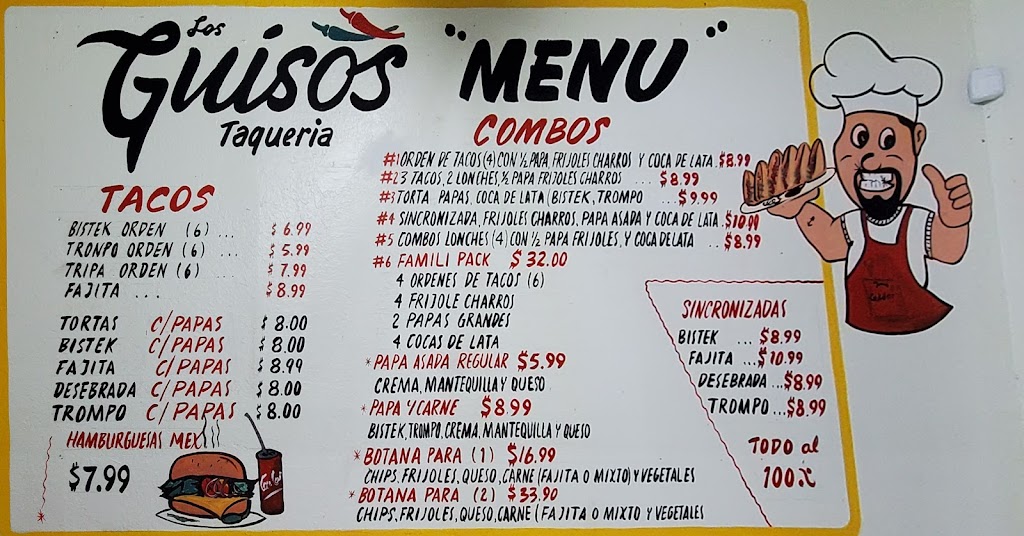 Los
Guisos
Taqueria
"MENU"
TACOS
BISTEK ORDEN (6) ... $ 6.99
TRONPO ORDEN (6) ... $ 5.99
TRIPA ORDEN (6) ... $ 7.99
FAJITA ... $ 8.99
TORTAS C/PAPAS $ 8.00
BISTEK C/PAPAS $ 8.00
FAJITA C/PAPAS $ 8.99
DESEBRADA C/PAPAS $ 8.00
TROMPO C/PAPAS $ 8.00
HAMBURGUESAS MEX
$7.99
COMBOS
#1 ORDEN DE TACOS (4) CON ½ PAPA FRIJOLES CHARROS Y COCA DE LATA. $8.99
#2 3 TACOS, 2 LONCHES, ½ PAPA FRIJOLES CHARROS ... $8.99
#3 TORTA PAPAS, COCA DE LATA (BISTEK, TROMPO ... $9.99
#4 SINCRONIZADA, FRIJOLES CHARROS, PAPA ASADA Y COCA DE LATA . $10.99
#5 COMBOS LONCHES (4) CON ½ PAPA FRIJOLES, Y COCA DE LATA .. $8.99
#6 FAMILI PACK $32.00
4 ORDENES DE TACOS (6)
4 FRIJOLE CHARROS
2 PAPAS GRANDES
4 COCAS DE LATA
*PAPA ASADA REGULAR $5.99
CREMA, MANTEQUILLA Y QUESO
*PAPA Y CARNE $8.99
BISTEK, TROMPO, CREMA, MANTEQUILLA Y QUESO
*BOTANA PARA (1) $16.99
CHIPS, FRIJOLES, QUESO, CARNE (FAJITA O MIXTO) Y VEGETALES
*BOTANA PARA (2) $33.90
CHIPS, FRIJOLES, QUESO, CARNE (FAJITA O MIXTO Y VEGETALES
SINCRONIZADAS
BISTEK ... $8.99
FAJITA ... $10.99
DESEBRADA ... $8.99
TROMPO ... $8.99
TODO al